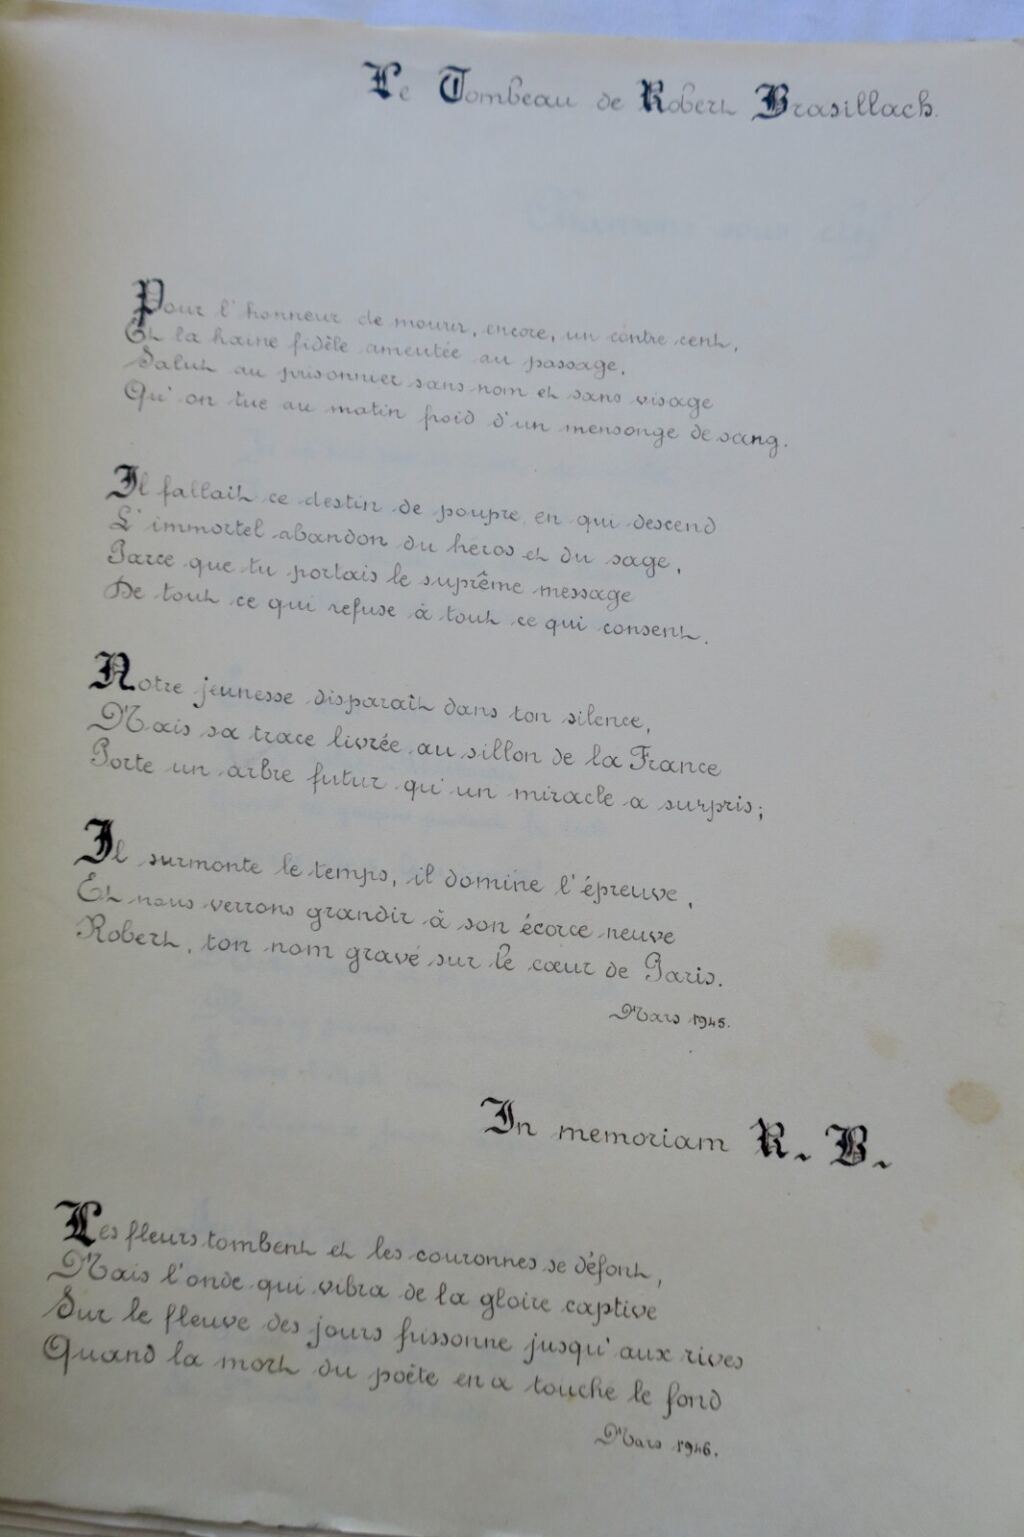 Le Tombeau de Robert Brasillach.
Pour l'honneur de mourir, encore, un contre cent,
Et la haine fidèle ameutée au passage,
Salut au prisonnier sans nom et sans visage
Qu'on tue au matin froid d'un mensonge de sang.
Il fallait ce destin de poupre en qui descend
L'immortel abandon du héros et du sage,
Parce que tu portais le suprême message
De tout ce qui refuse à tout ce qui consent.
Notre jeunesse disparaît dans ton silence,
Mais sa trace livrée au sillon de la France
Porte un arbre futur qu'un miracle a surpris;
Il surmonte le temps, il domine l'épreuve,
Et nous verrons grandir à son écorce neuve
Robert, ton nom gravé sur le cœur de Paris.
Mars 1945.
In memoriam R. B.
Les fleurs tombent et les couronnes se défont,
Mais l'onde qui vibra de la gloire captive
Sur le fleuve des jours fussonne jusqu'aux rives
Quand la mort du poëte en a touche le fond
Mars 1946.